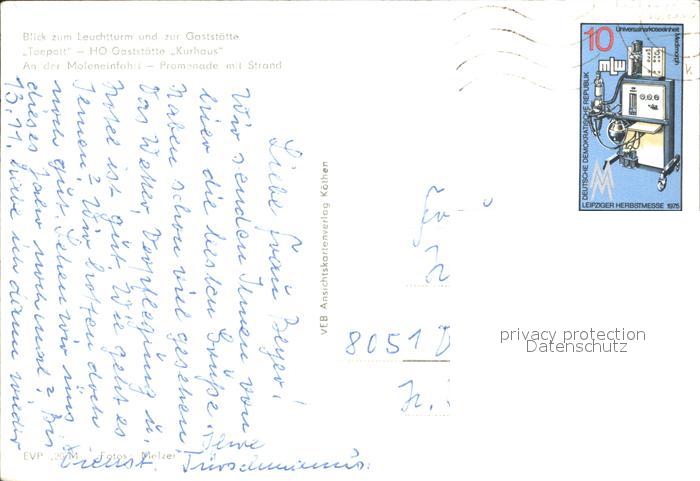 Blick zum Leuchtturm und zur Gaststätte
„Teepott" – HO Gaststätte „Kurhaus"
An der Moleneinfahrt – Promenade mit Strand
Liebe Frau Beyer!
Wir senden Ihnen von
hier die besten Grüße.
Haben schon viel gesehen.
Das Wetter, Verpflegung u.
Insel ist gut. Wie geht es
Ihnen? Wir hoffen doch
noch gut. Sehen wir uns
dieses Jahr nochmal? Bis
13.11. habe ich dann wieder
Dienst. Ihre
EVP -,20 M Fotos: Melzer
VEB Ansichtskartenverlag Köthen
10
Universalnarkoseeinheit
Medimorph
DEUTSCHE DEMOKRATISCHE REPUBLIK
MM
LEIPZIGER HERBSTMESSE 1975
Fr
8051 D
privacy protection
Datenschutz